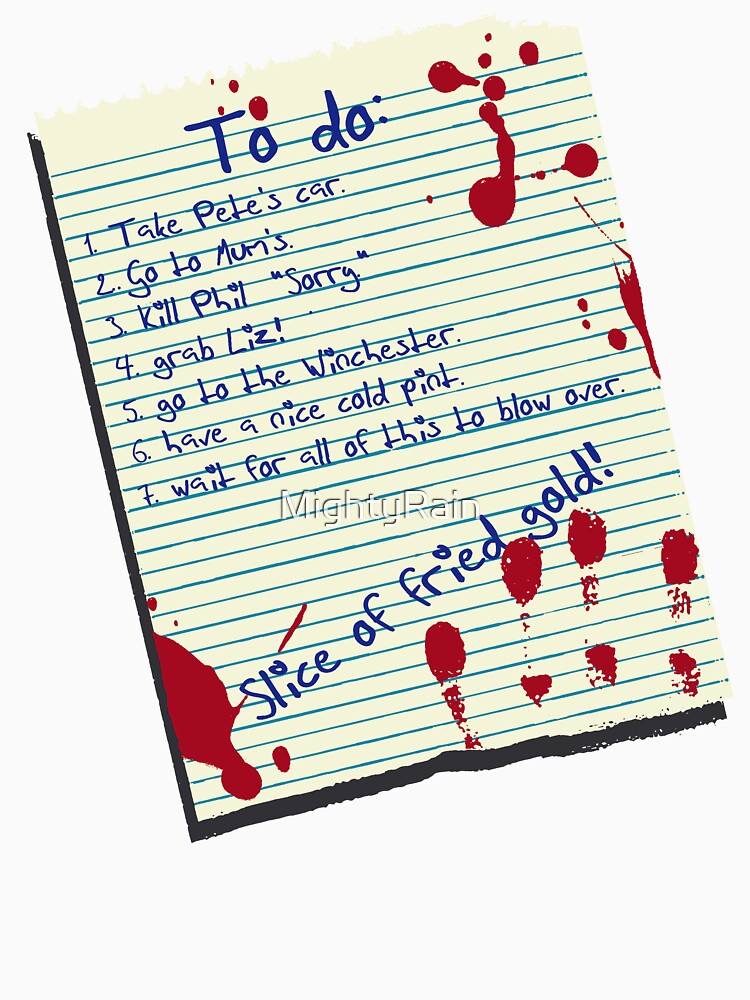 To do:
1. Take Pete's car.
2. Go to Mum's.
3. Kill Phil "Sorry."
4. grab Liz!
5. go to the Winchester.
6. have a nice cold pint.
7. wait for all of this to blow over.
MightyRain
Slice of fried gold!